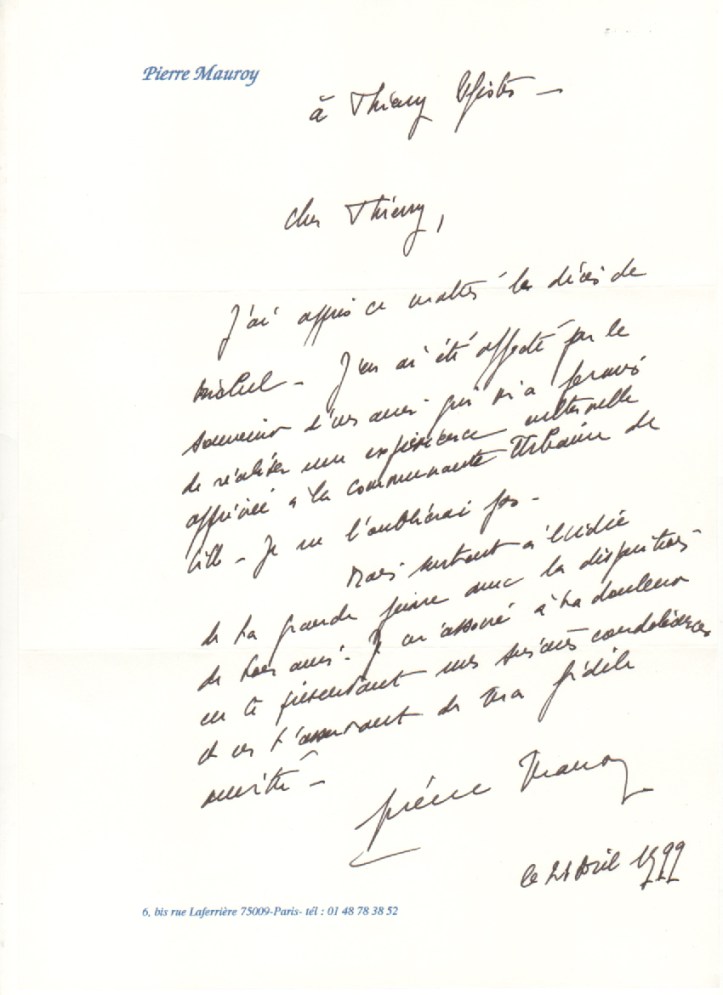 Pierre Mauroy
à Thierry
Cher Thierry,
J'ai appris ce matin le décès de
Michel - J'en ai été affecté par le
souvenir d'un ami qui m'a permis
de réaliser une expérience culturelle
appréciée à la Communauté Urbaine de
Lille - Je ne l'oublierai pas -
Mais surtout à l'idée
de ta grande peine avec la disparition
de ton ami - Je m'associe à ta douleur
en te présentant mes sincères condoléances
et en t'assurant de ma fidèle
amitié -
Pierre Mauroy
le 21 Avril 1999
6, bis rue Laferrière 75009-Paris- tél : 01 48 78 38 52